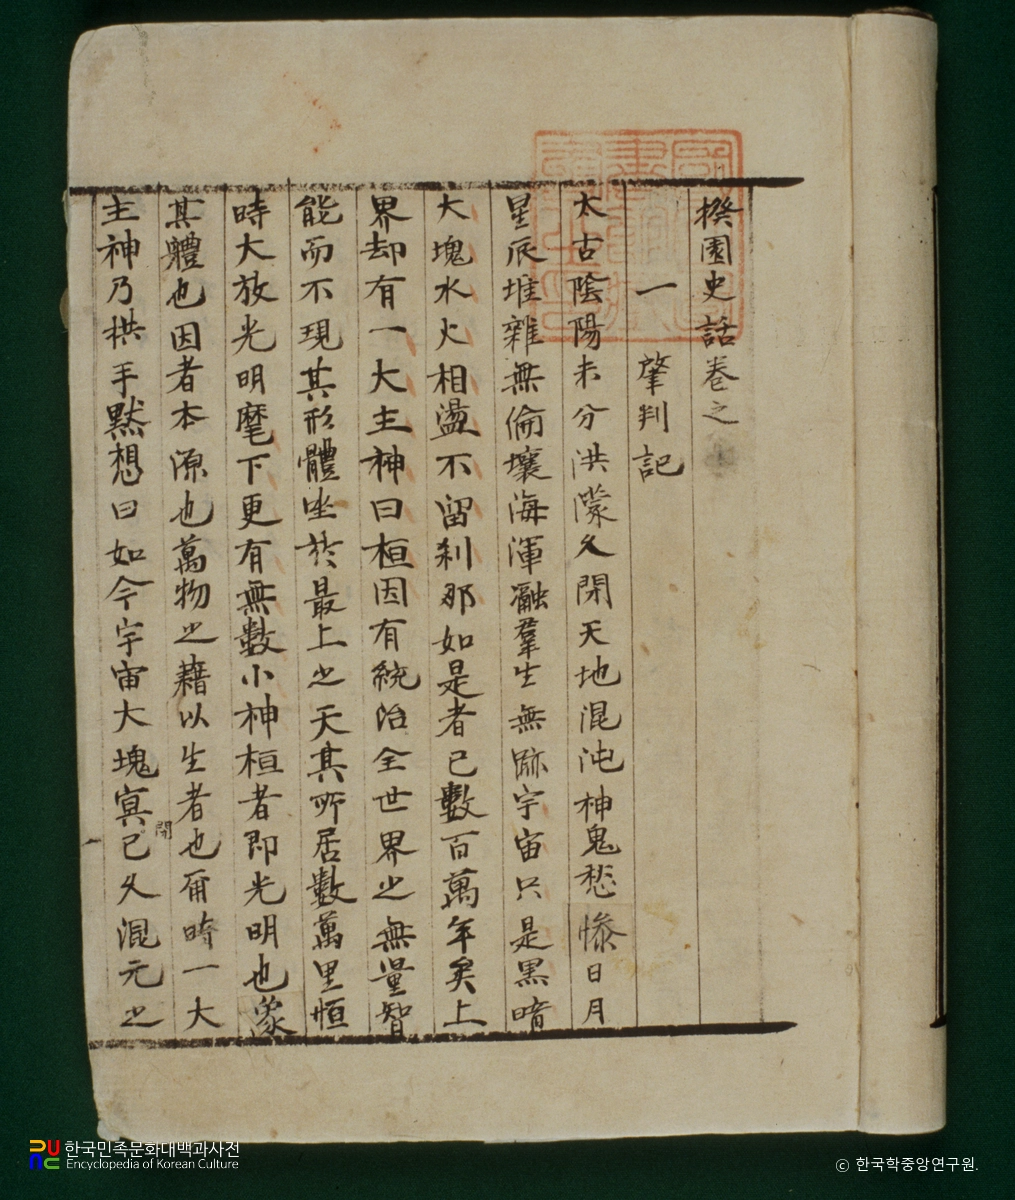 揆園史話卷之
一 肇判記
太古陰陽未分洪濛久閉天地混沌神鬼愁慘日月
星辰堆雜無倫壤海渾瀜羣生無跡宇宙只是黑暗
大塊水火相盪不留刹那如是者已數百萬年矣上
界却有一大主神曰桓因有統治全世界之無量智
能而不現其形體坐於最上之天其所居數萬里恒
時大放光明麾下更有無數小神桓者即光明也象
其體也因者本源也萬物之藉以生者也爾時一大
主神乃拱手黙想曰如今宇宙大塊冥閉已久混元之
한국민족문화대백과사전
Encyclopedia of Korean Culture
ⓒ 한국학중앙연구원.